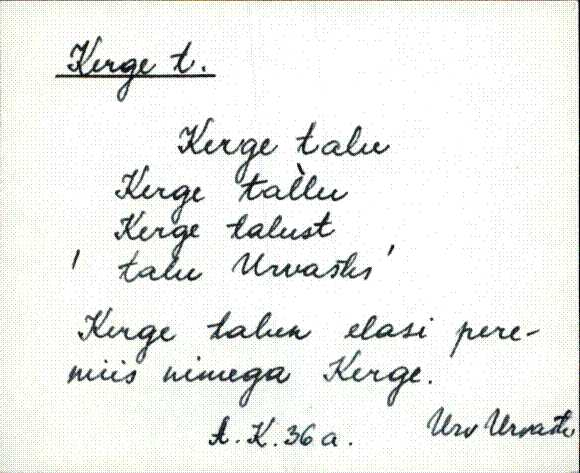 Kerge t.
Kerge talu
Kerge tal̀lu
Kerge talust
' talu Urvastes'
Kerge talun elasi pere-
miis nimega Kerge.
A.K. 36 a. Urv Urvaste